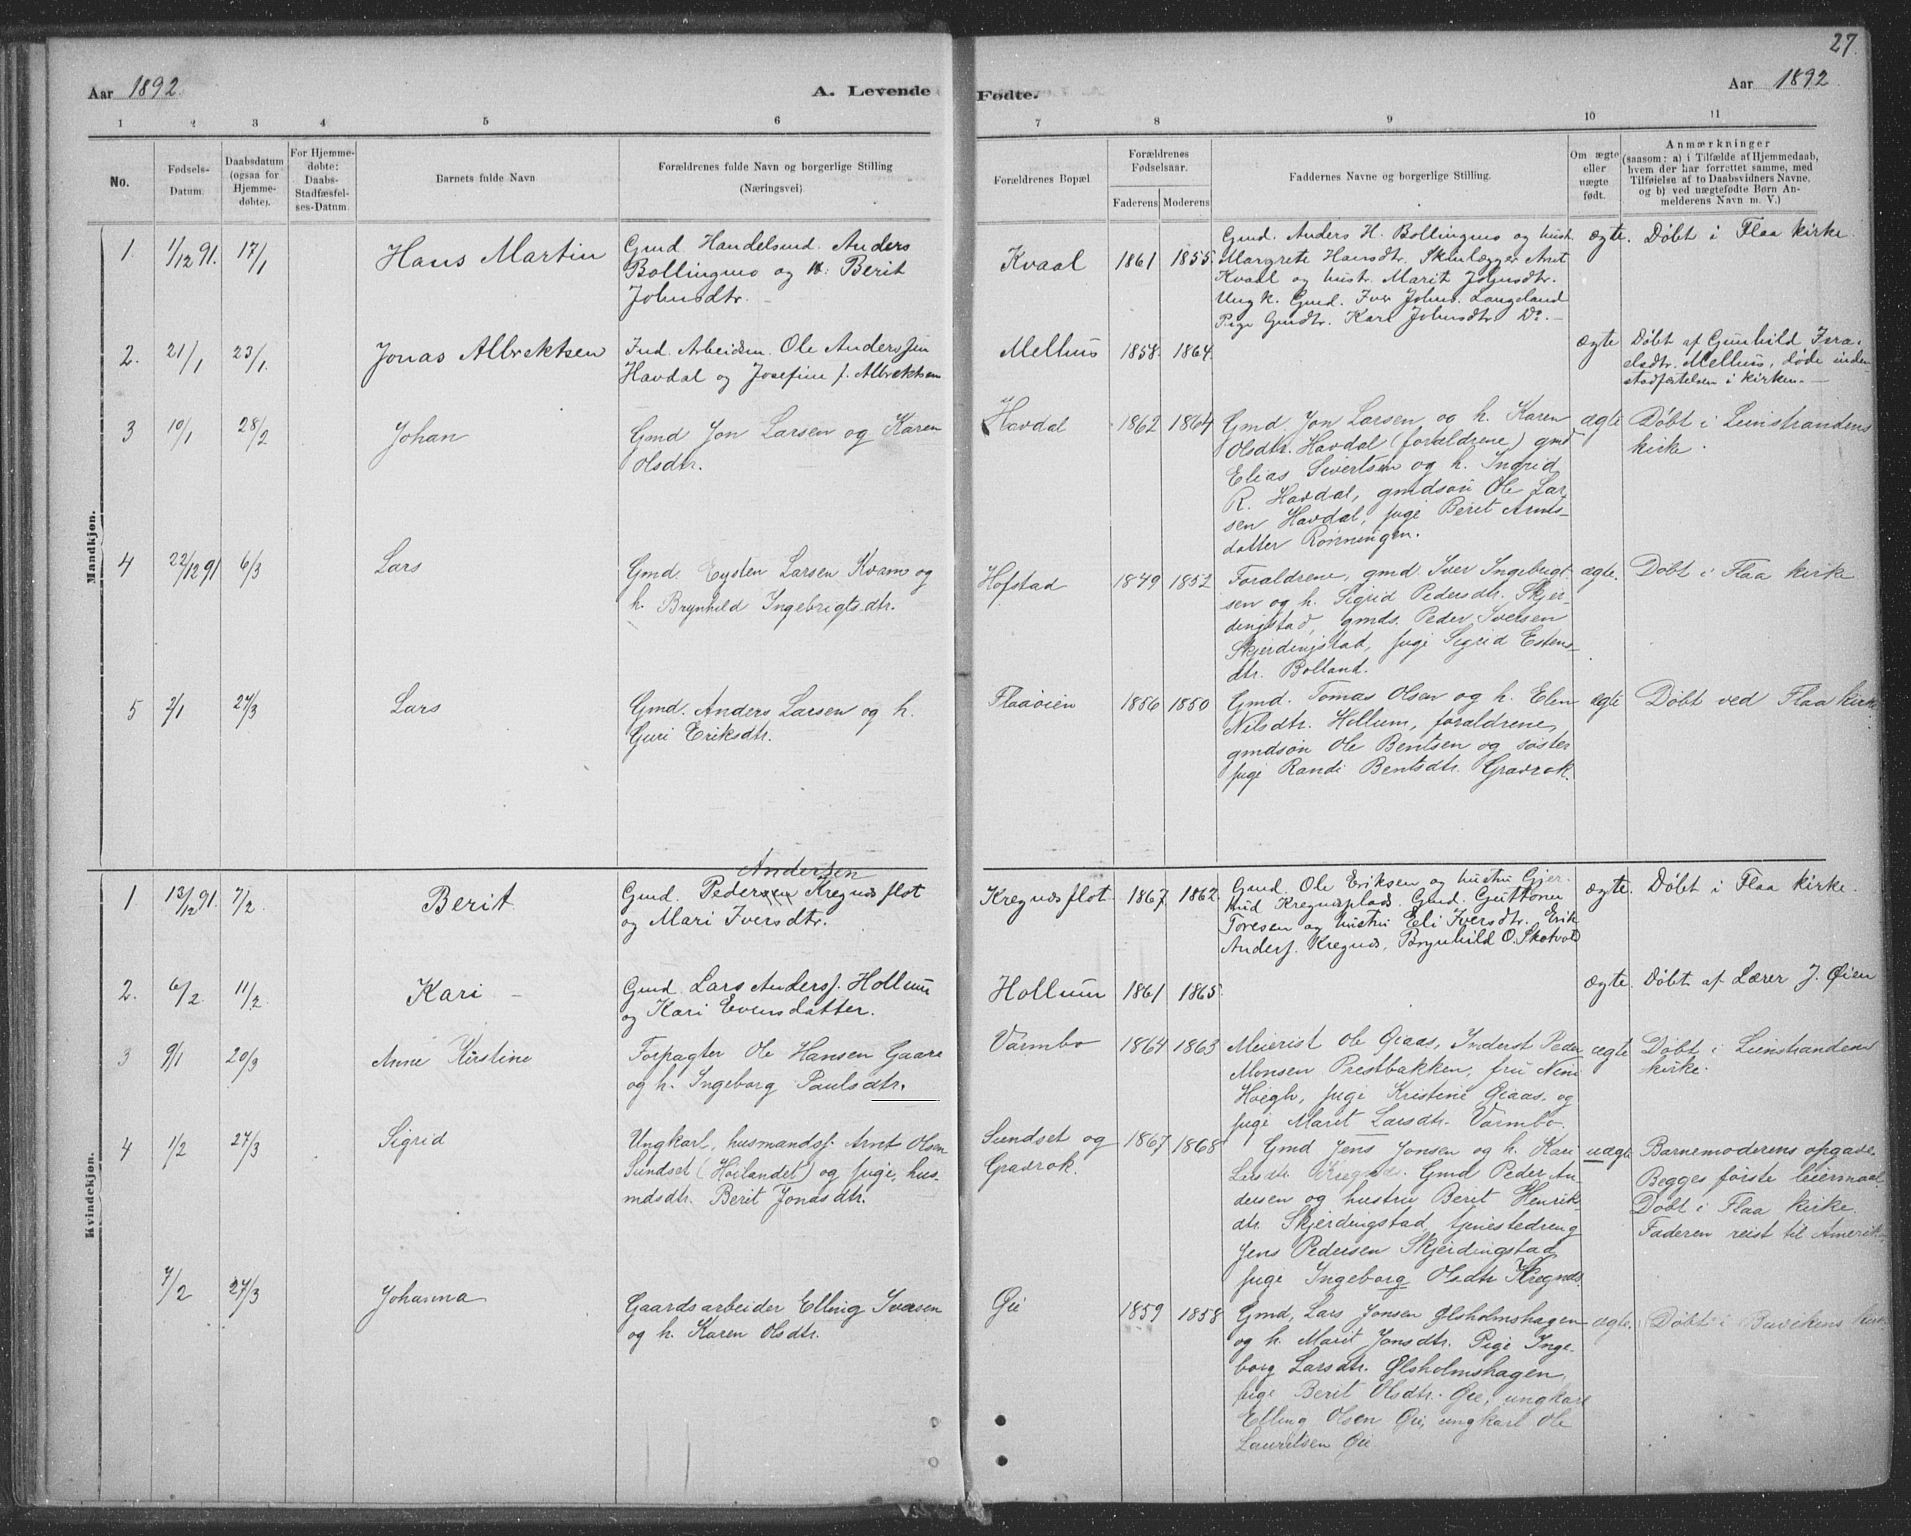 27.
Aar 1892.
A. Levende
Fødte.
Aar 1892.
1 2 3 4 5 6
7 8 9 10 11
No.
Fødsels-
Datum.
Daabsdatum
(ogsaa for
Hjemme-
døbte).
For Hjemme-
døbte:
Daabs-
Stadfæsfel-
ses-Datum.
Barnets fulde Navn
Forældrenes fulde Navn og borgerlige Stilling
(Næringsvei).
Forældrenes Bopæl
Forældrenes
Fødselsaar.
Faderens Moderens
Faddernes Navne og borgerlige Stilling.
Om ægte
eller
uægte
født.
Anmærkninger
(saasom: a) i Tilfælde af Hjemmedaab,
hvem der har forrettet samme, med
Tilføielse af to Daabsvidners Navne,
og b) ved uægtefødte Børn An-
melderens Navn m. V.)
Mandkjøn.
1. 1/12 91. 17/1 Hans Martin
Gmd Handelsmd. Anders
Bollingmo og H: Berit
Johnsdtr.
Kvaal 1861 1855.
Gmd. Anders H. Bollingmo og hust.
Margrete Hansdtr. Skinlægger Arnt
Kvaal og hustr. Marit Johnsdtr.
Ungk. Gmd. Iver Johns. Langeland
Pige Gmdtr. Kari Johnsdtr. Do. -
ægte. Døbt i Flaa Kirke
2. 21/1 23/1. Jonas Albrektsen
Ind. Arbeidsm. Ole Anderssen
Havdal og Josefine f. Albrektsen
Melhus 1858. 1864.
ægte
Døbt af Gunhild Isra-
elsdtr. Melhus, døde inden
stadfæstelsen i kirken. -
3 10/1 28/2 Johan
Gmd Jon Larsen og Karen
Olsdtr.
Havdal 1862 1864
Gmd. Jon Larsen og h. Karen
Olsdtr. Havdal (forældrene) gmd
Elias Sivertsen og h. Ingrid
R. Havdal, gmdsøn Ole Lar
sen Havdal, pige Berit Arnts-
datter Rønningen.
ægte Døbt i Leinstrandens
kirke.
4 22/12 91 6/3 Lars
Gmd. Eysten Larsen Kvam og
h. Brynhild Ingebrigtsdtr.
Hofstad 1849 1852
Forældrene, gmd. Iver Ingebrigt
sen og h. Sigrid Pedersdtr. Skjer-
dingstad, gmds. Peder Iversen
Skjerdingstad, pige Sigrid Estens-
dtr. Bolland.
ægte. Døbt i Flaa kirke
5 2/1 27/3 Lars
Gmd. Anders Larsen og h.
Guri Eriksdtr.
Flaaøien 1856 1850
Gmd. Tomas Olsen og h. Elen
Nilsdtr. Hollum, forældrene,
gmdsøn Ole Bentsen og søster
pige Randi Bentsdtr. Gravrok.
ægte Døbt ved Flaa kirke
Kvindekjøn.
1 13/12 91. 7/2. Berit
Andersen
Gmd. Pedersen Kregnæsflot
og Mari Iversdtr.
Kregnæsflot. 1867 1862.
Gmd. Ole Eriksen og hustru Gjer-
trud Kregnæsplads. Gmd. Guttorm
Toresen og hustru Eli Iversdtr. Erik
Anders. Kregnæs, Brynhild O. Skotvol
ægte. Døbt i Flaa kirke.
2. 6/2 11/2. Kari -
Gmd. Lars Anders. Hollum
og Kari Evensdatter.
Hollum 1861 1865.
ægte. Døbt af Lærer J. Øien
3 9/1 20/3 Anne Kirstine
Forpagter Ole Hansen Gaare
og h. Ingeborg Paulsdtr.
Varmbo 1864 1863
Meierist Ole Giaas, Inderst Peder
Monsen Prestbakken, fru Nini
Høegh, pige Kristine Giaas og
pige Marit Larsdtr. Varmbo.
ægte Døbt i Leinstrandens
kirke.
4 1/2 27/3 Sigrid
Ungkarl, husmandss. Arnt Olsen
Sundset (Høilandet) og pige, hus-
mdsdtr. Berit Jonasdtr.
Sundset og
Gravrok. 1867 1868
Gmd Jens Jonsen og h. Kari
Larsdtr. Kregnæs. Gmd Peder An-
dersen og hustru Berit Henrik
dtr. Skjerdingstad, tjenestedreng
Jens Pedersen Skjerdingstad,
pige Ingeborg Olsdtr Kregnæs
uægte Barnemoderens opgave.
Begges første leiermaal.
Døbt i Flaa kirke.
Faderen reist til Amerik-
7/2 27/3 Johanna
Gaardsarbeider Elling Iversen
og h. Karen Olsdtr.
Øie 1859 1858
Gmd, Lars Jonsen Ølsholmshagen
og h. Marit Jonsdtr. Pige Inge-
borg Larsdtr. Ølsholmshagen,
pige Berit Olsdtr. Øie, ungkarl
Elling Olsen Øie, ungkarl Ole
Lauritsen Øie
ægte. Døbt i Buvikens kirke